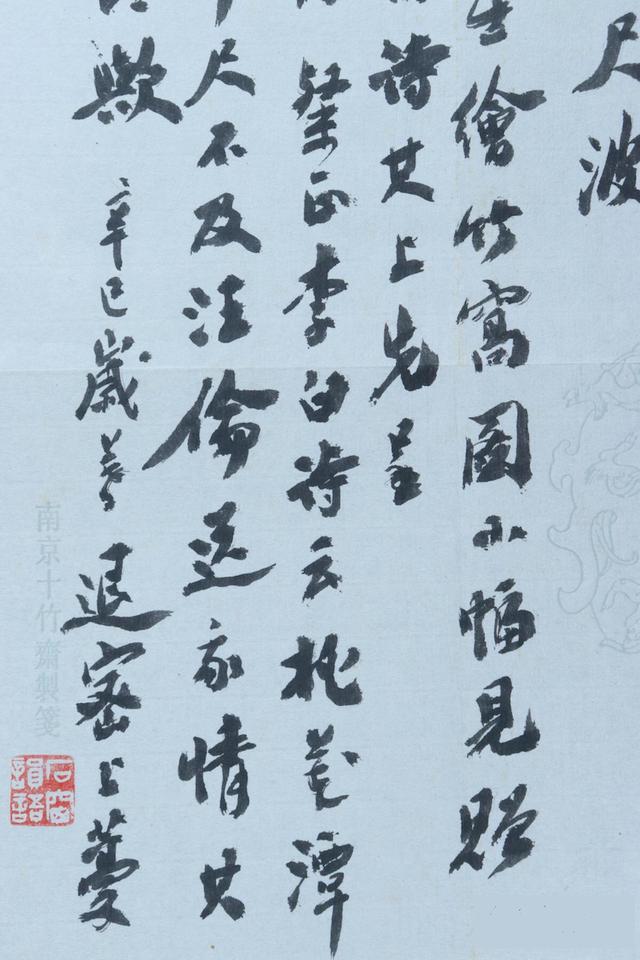 尺波
繪竹窩圖小幅見貽
詩其上先呈
粲正李白詩云桃花潭
尺不及汪倫送我情其
歟 辛巳歲暮退密上
南京十竹齋製箋
石窗韻語